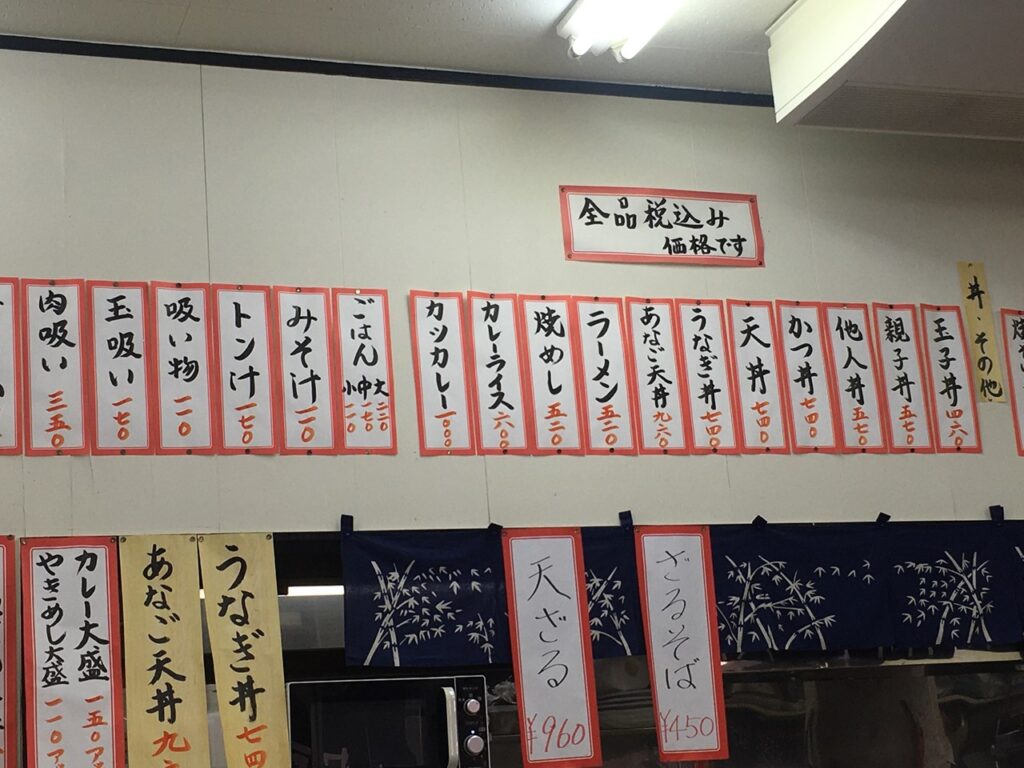 全品税込み
価格です
丼・その他
玉子丼 四六〇
親子丼 五七〇
他人丼 五七〇
かつ丼 七四〇
天丼 七四〇
うなぎ丼 七四〇
あなご天丼 九六〇
ラーメン 五二〇
焼めし 五二〇
カレーライス 六〇〇
カツカレー 一〇〇〇
ごはん
大 二二〇
中 一七〇
小 一一〇
みそ汁 一一〇
トン汁 一七〇
吸い物 一一〇
玉吸い 一七〇
肉吸い 三五〇
ざるそば
¥450
天ざる
¥960
うなぎ丼 七四
あなご天丼 九
カレー大盛 一五〇ア
やきめし大盛 一一〇ア